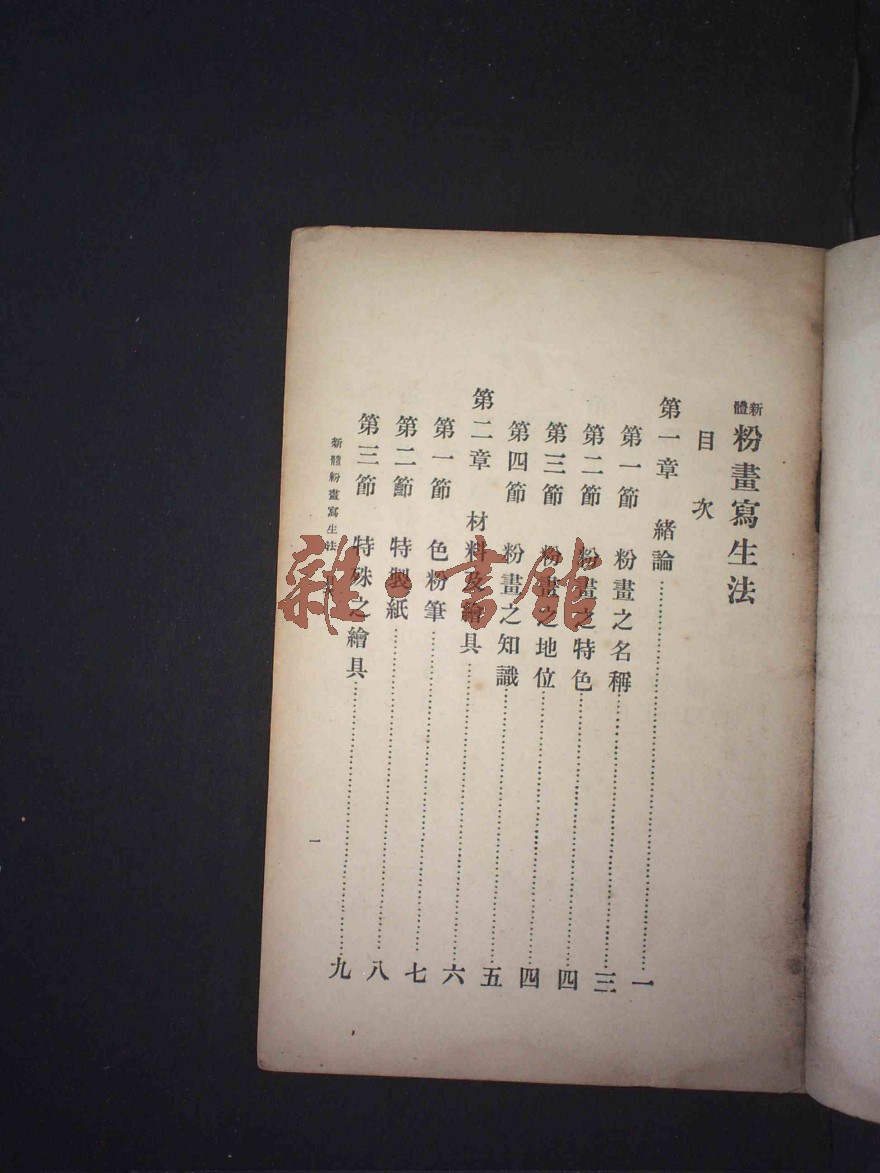 新體 粉畫寫生法
目次
第一章 緒論……………………一
第一節 粉畫之名稱……………………三
第二節 粉畫之特色……………………四
第三節 粉畫之地位……………………四
第四節 粉畫之知識……………………五
第二章 材料及繪具……………………六
第一節 色粉筆……………………七
第二節 特製紙……………………八
第三節 特殊之繪具……………………九
新體粉畫寫生法 目次
一
雜·書館